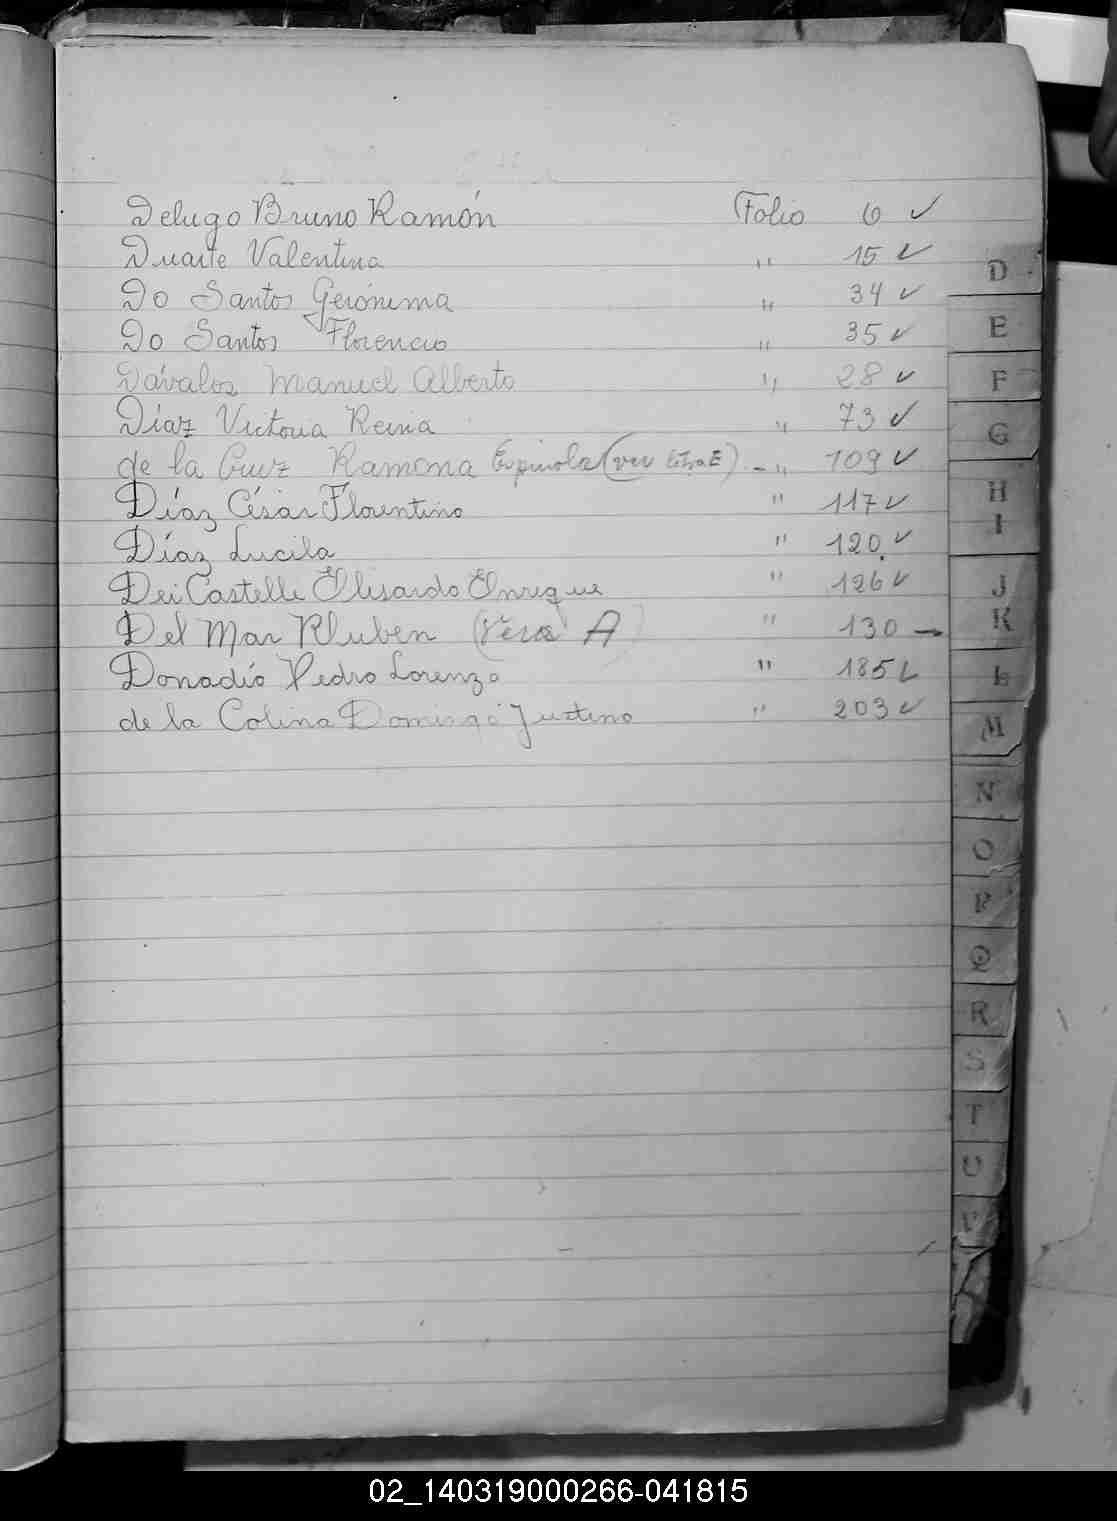 Delugo Bruno Ramón Folio 6 ✓
Duarte Valentina " 15 ✓
Do Santos Gerónima " 34 ✓
Do Santos Florencio " 35 ✓
Dávalos Manuel Alberto " 28 ✓
Díaz Victoria Reina " 73 ✓
de la Cruz Ramona Espinola (ver letra E) - " 109 ✓
Díaz César Florentino " 117 ✓
Díaz Lucila " 120 ✓
Dei Castelle Elisardo Enrique " 126 ✓
Del Mar Rluben ( A " 130 -
Donadío Pedro Lorenzo " 185 ✓
de la Colina Domingo Justino " 203 ✓
D
E
F
G
H
I
J
K
L
M
N
O
P
Q
R
S
T
U
V
02_140319000266-041815